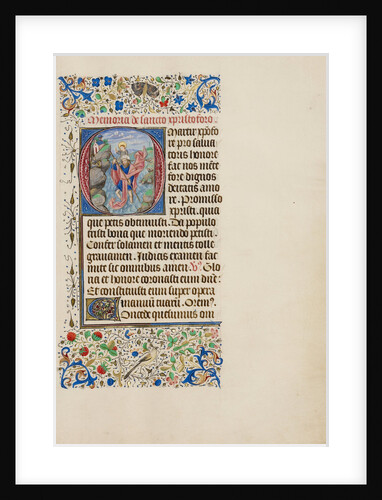 Memoria de sancto xpristoforo
Martir xpofo
re pro salua
toris honore
fac nos mete
fore dignos
deitatis amo
re. Promisso
xpristi. quia
que petis obtinuisti. Da populo
tristi bona que moriendo petisti.
Confer solamen et mentis tolle
grauamen. Judicis examen fac
mite sit omnibus amen. Glo
ria et honore coronasti eum dne.
Et constituisti eum super opera
manuum tuarum. Orem'.
Concede quesumus om